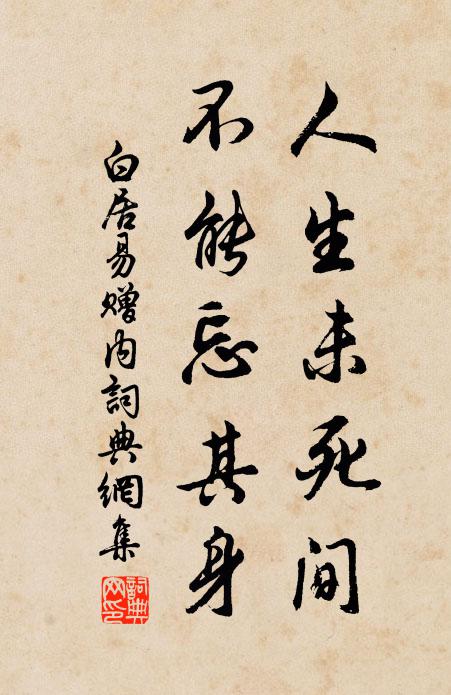 人生未死间
不能忘其身
白居易赠内詞典網集
詞典
网印